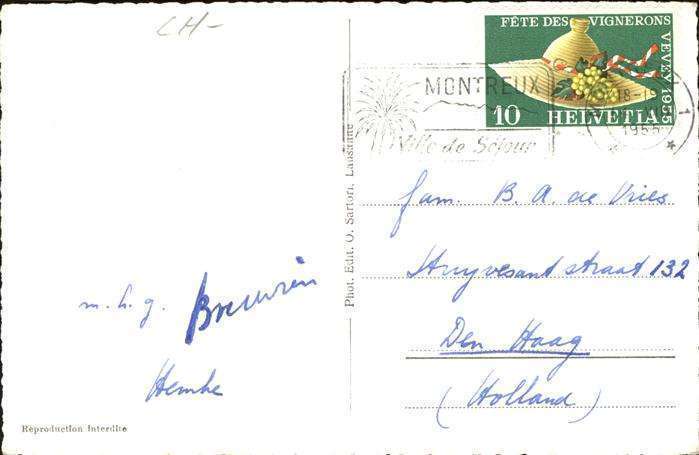 CH-
FÊTE DES VIGNERONS
VEVEY 1955
10 HELVETIA
MONTREUX
Ville de Séjour
18-1
1955
Phot. Edit. O. Sartori, Lausanne
fam. B. A. de Vries
Stuyvesant straat 132
Den Haag
(Holland)
m. h. g.
Henke
Réproduction Interdite